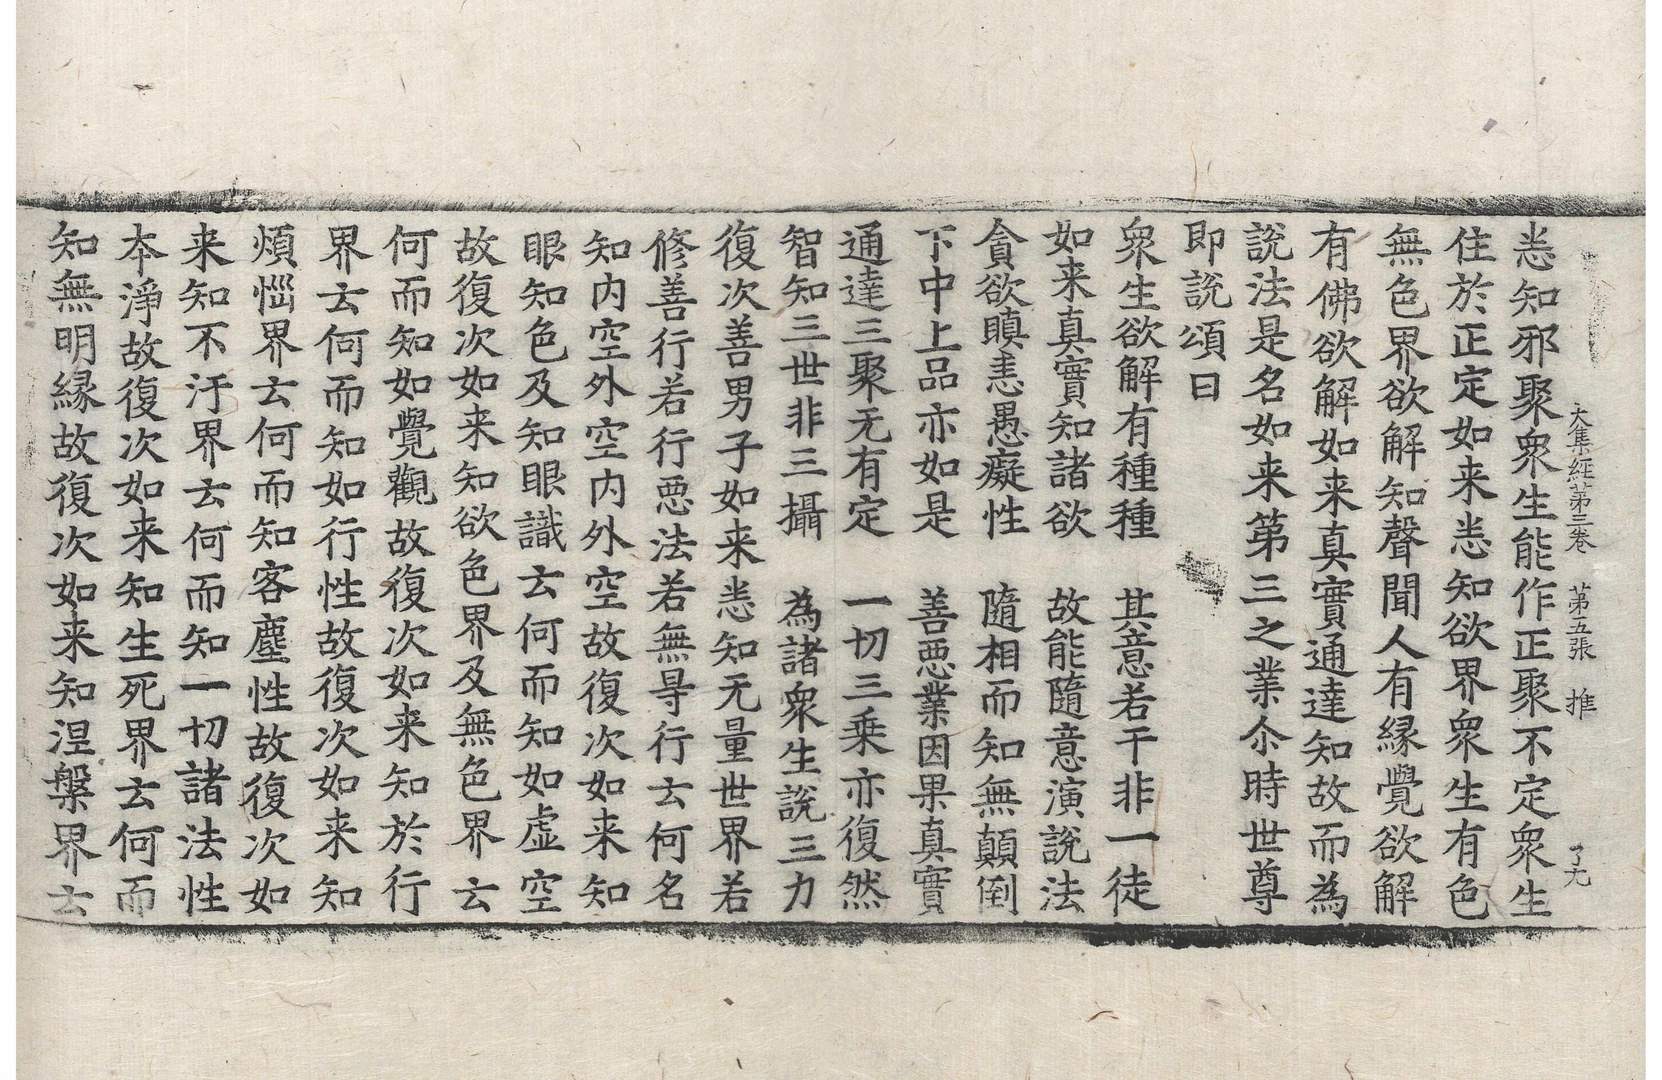 大集経第三巻 第五張 推
悉知邪聚衆生能作正聚不定衆生
住於正定如来悉知欲界衆生有色
無色界欲解知聲聞人有縁覺欲解
有佛欲解如来真實通達知故而為
說法是名如来第三之業尒時世尊
即說頌曰
衆生欲解有種種 其意若干非一徒
如来真實知諸欲 故能隨意演說法
貪欲瞋恚愚癡性 隨相而知無顛倒
下中上品亦如是 善惡業因果真實
通達三聚无有定 一切三乗亦復然
智知三世非三攝 為諸衆生說三力
復次善男子如来悉知无量世界若
修善行若行惡法若無㝵行云何名
知内空外空内外空故復次如来知
眼知色及知眼識云何而知如虚空
故復次如来知欲色界及無色界云
何而知如覺觀故復次如来知於行
界云何而知如行性故復次如来知
煩惱界云何而知客塵性故復次如
来知不汙界云何而知一切諸法性
本淨故復次如来知生死界云何而
知無明縁故復次如来知涅槃界云